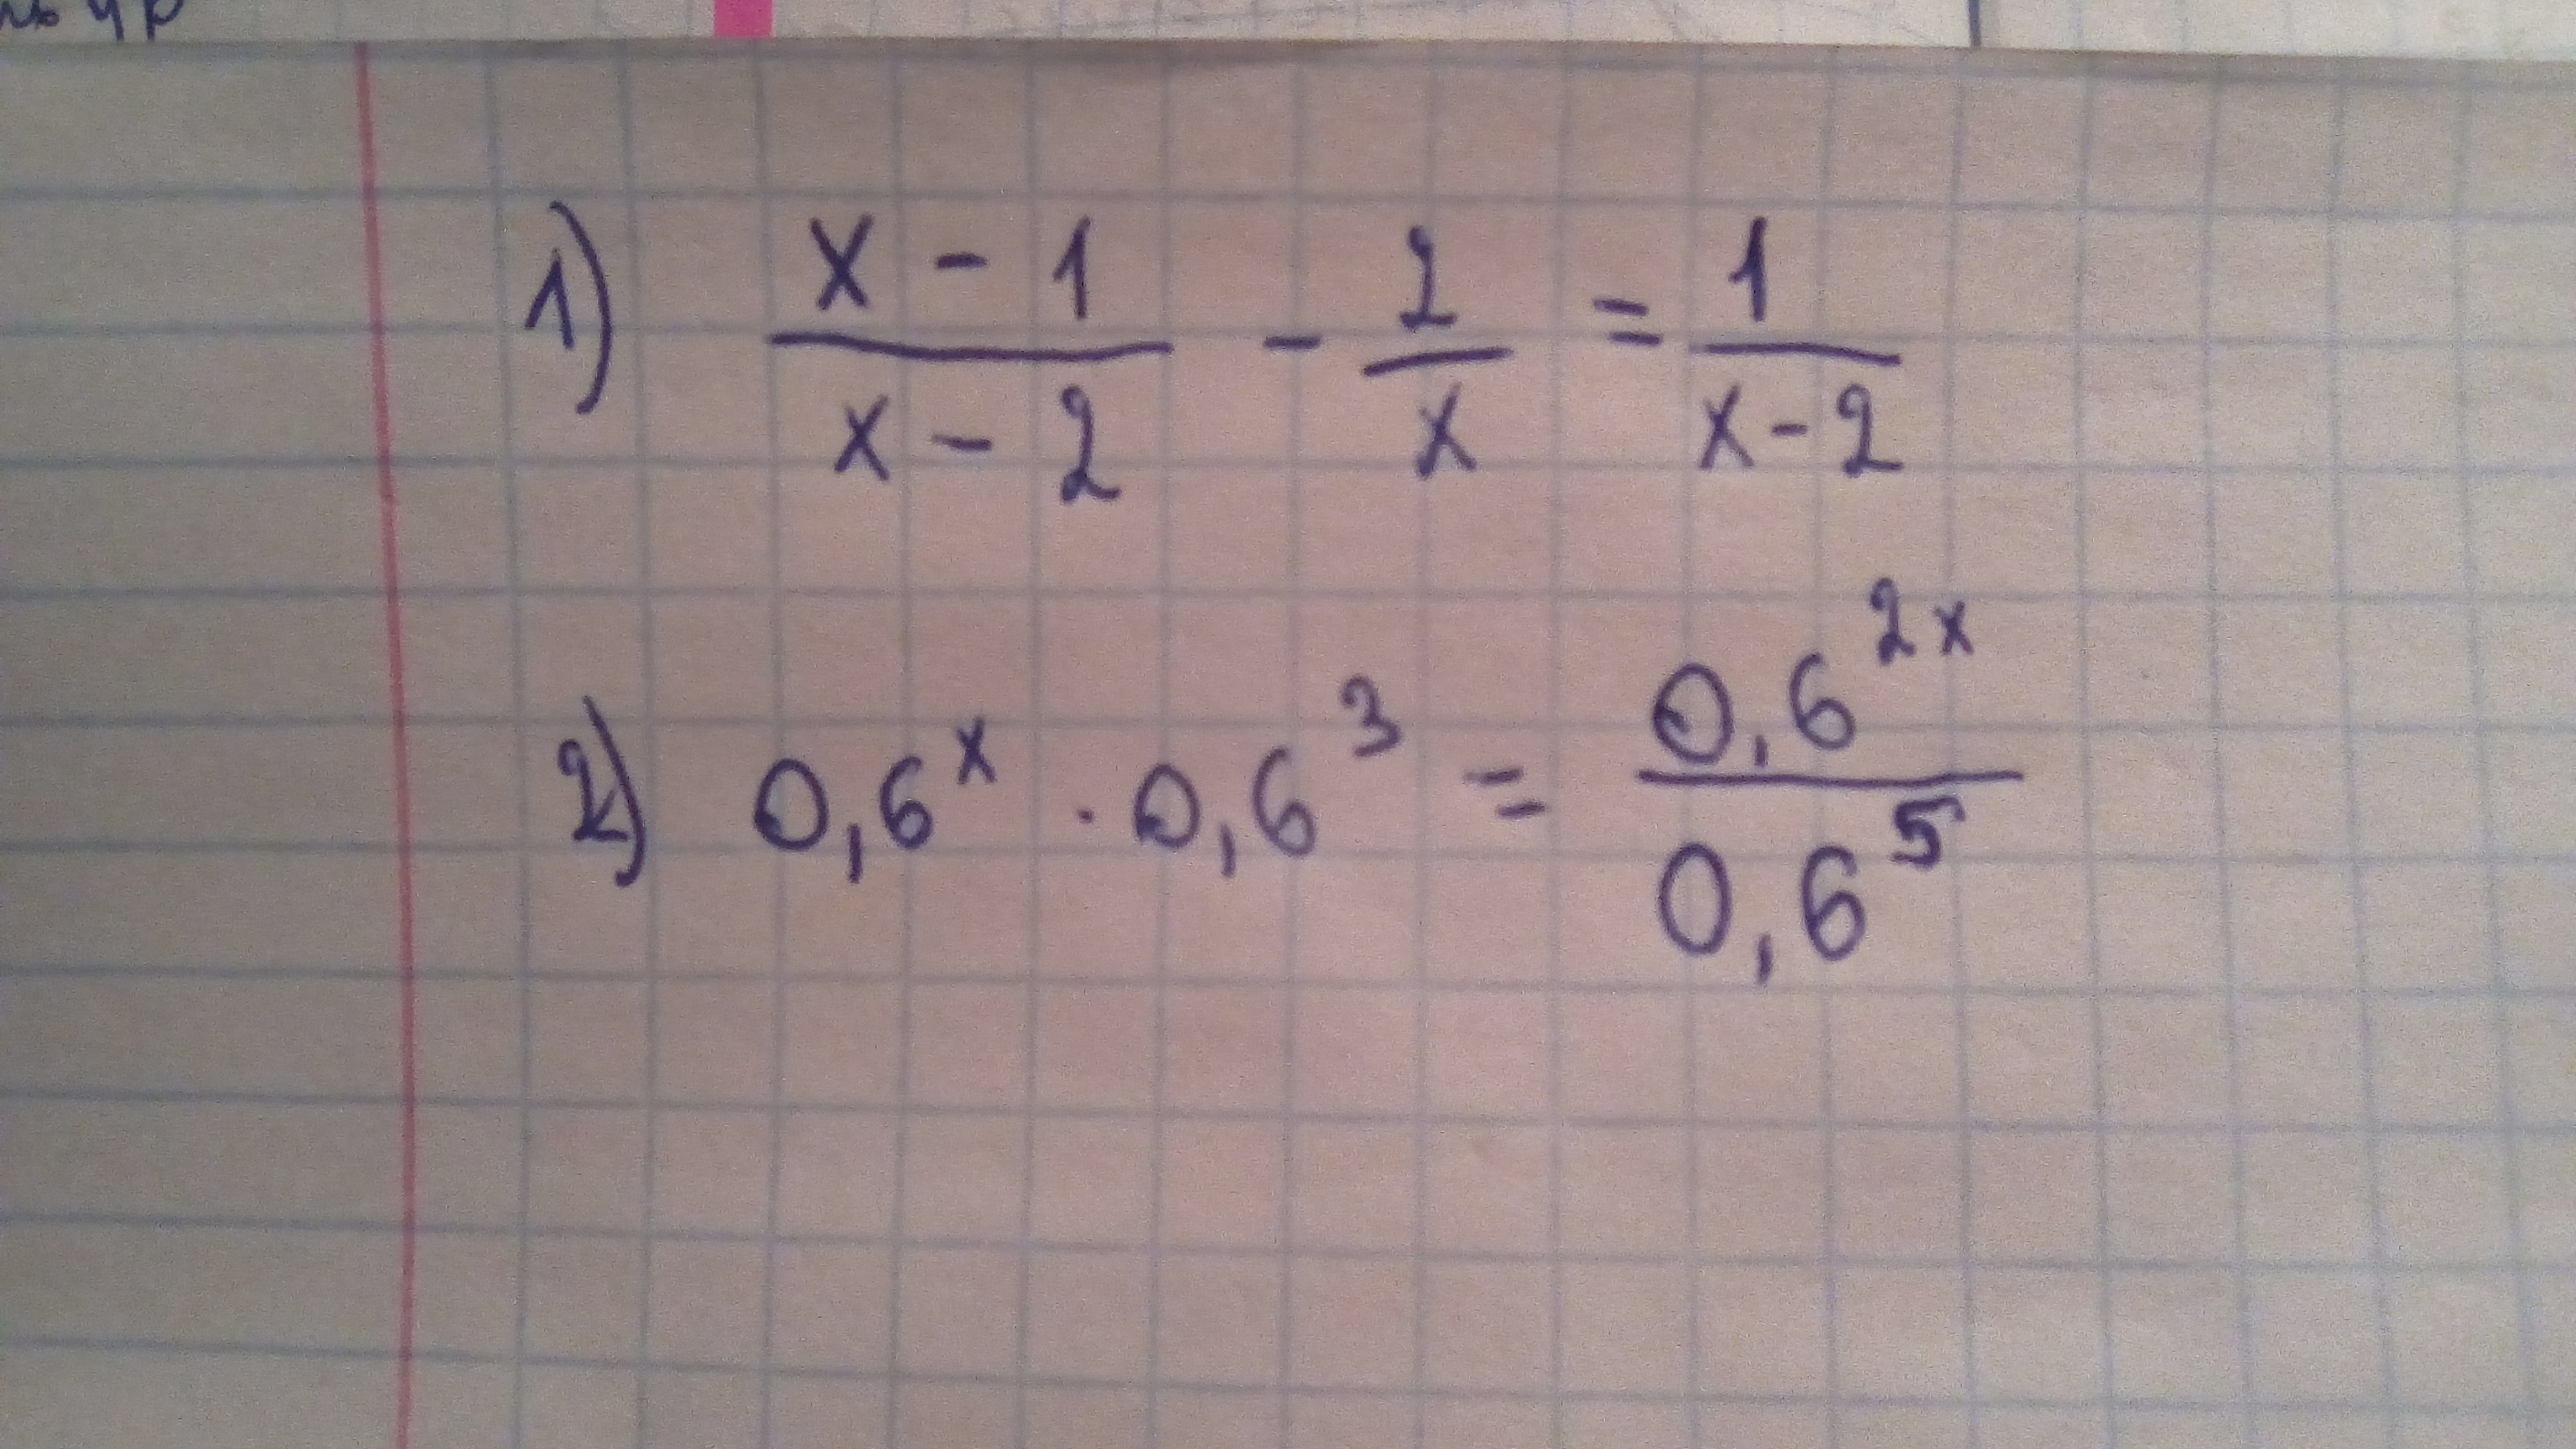 1) \frac{x - 1}{x - 2} - \frac{2}{x} = \frac{1}{x - 2}
2) 0,6^x · 0,6^3 = \frac{0,6^{2x}}{0,6^5}